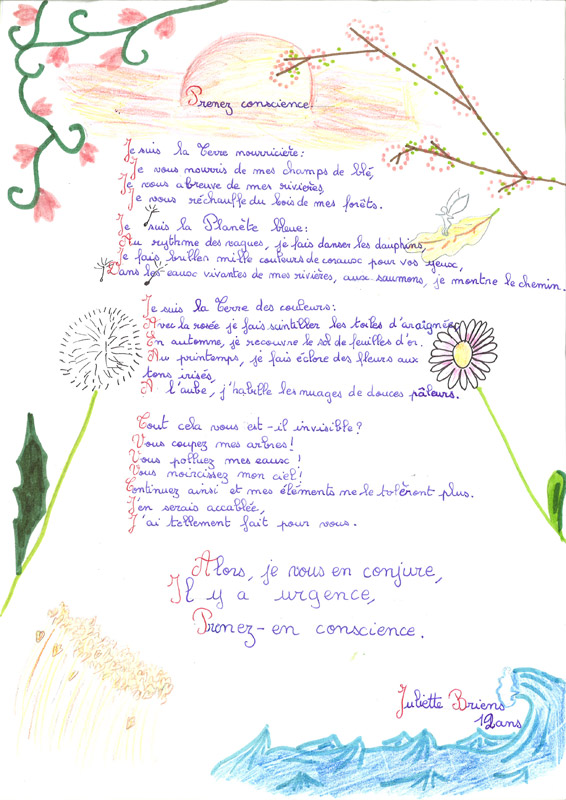 Prenez conscience.
Je suis la Terre nourricière:
Je vous nourris de mes champs de blé,
Je vous abreuve de mes rivières,
Je vous réchauffe du bois de mes forêts.
Je suis la Planète bleue:
Au rythme des vagues, je fais danser les dauphins,
Je fais briller mille couleurs de coraux pour vos yeux,
Dans les eaux vivantes de mes rivières, aux saumons, je montre le chemin.
Je suis la Terre des couleurs:
Avec la rosée je fais scintiller les toiles d'araignée,
En automne, je recouvre le sol de feuilles d'or.
Au printemps, je fais éclore des fleurs aux
tons irisés,
A l'aube, j'habille les nuages de douces pâleurs.
Tout cela vous est-il invisible?
Vous coupez mes arbres!
Vous polluez mes eaux!
Vous noircissez mon ciel!
Continuez ainsi et mes éléments ne le tolèront plus.
J'en serais accablée,
J'ai tellement fait pour vous.
Alors, je vous en conjure,
Il y a urgence,
Prenez-en conscience.
Juliette Briens
12ans